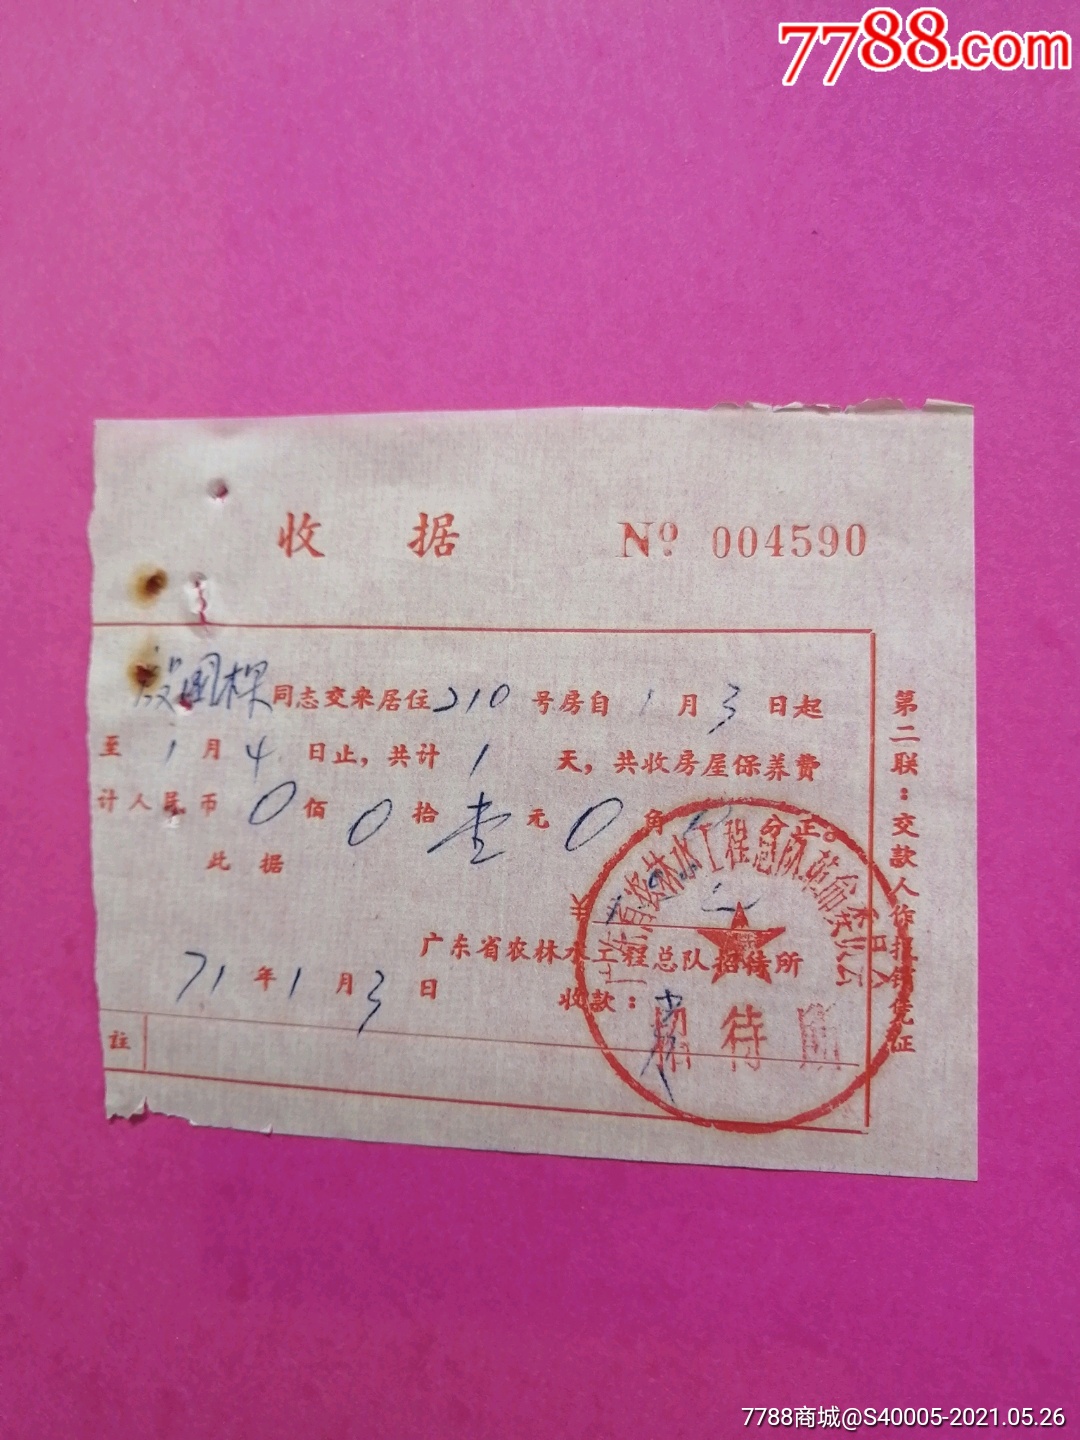 7788.com
收据 Nº 004590
国棵同志交来居住210号房自1月3日起
至1月4日止，共计1天，共收房屋保养费
计人民币0佰0拾壹元0角分正。
此据
广东省农林水工程总队招待所
71年1月3日 收款：
註
第二联：交款人作报销凭证
广东省农林水工程总队革命委员会
招待所
7788商城@S40005-2021.05.26